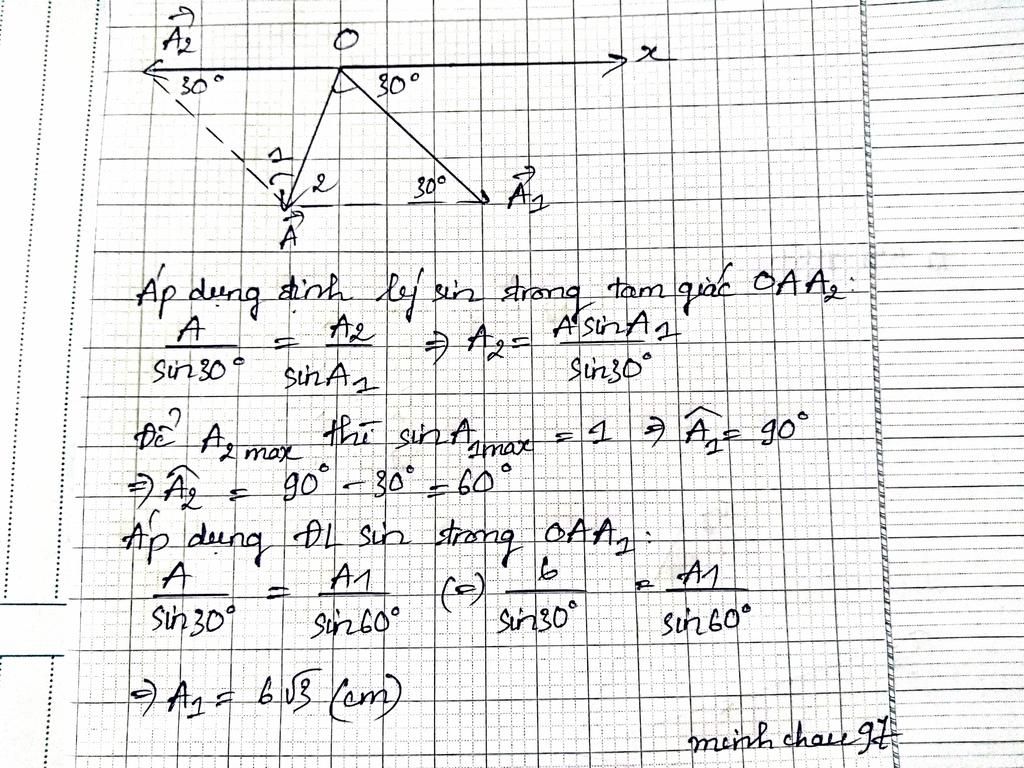 A⃗₂ O x
30° 30°
1 2 30° A⃗₁
A⃗
Áp dụng định lý sin trong tam giác OAA₂:
A/sin30° = A₂/sinA₁ ⇒ A₂ = A sinA₁/sin30°
Để A₂max thì sinA₁max = 1 ⇒ Â₁ = 90°
⇒ Â₂ = 90° - 30° = 60°
Áp dụng ĐL sin trong OAA₁:
A/sin30° = A1/sin60° (⇔) 6/sin30° = A1/sin60°
⇒ A₁ = 6√3 (cm)
minh chau 97